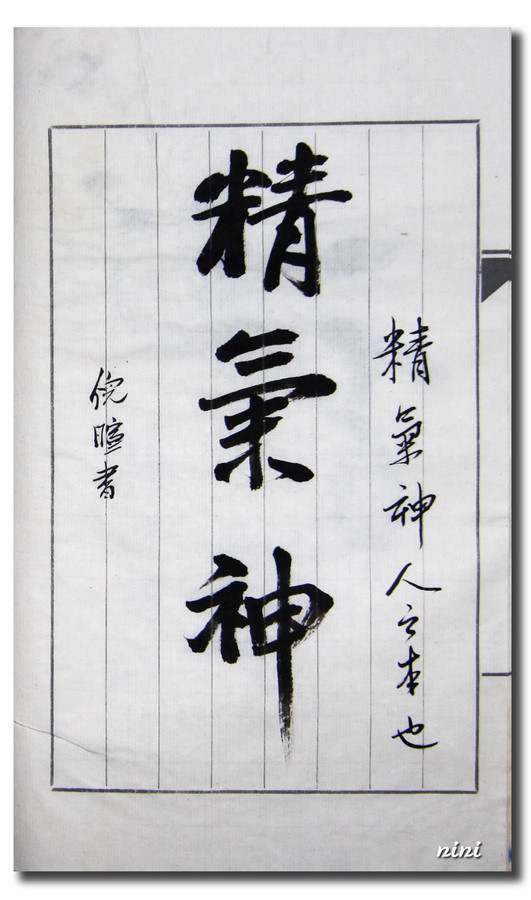 精氣神人之本也
精氣神
倪暄書
nini